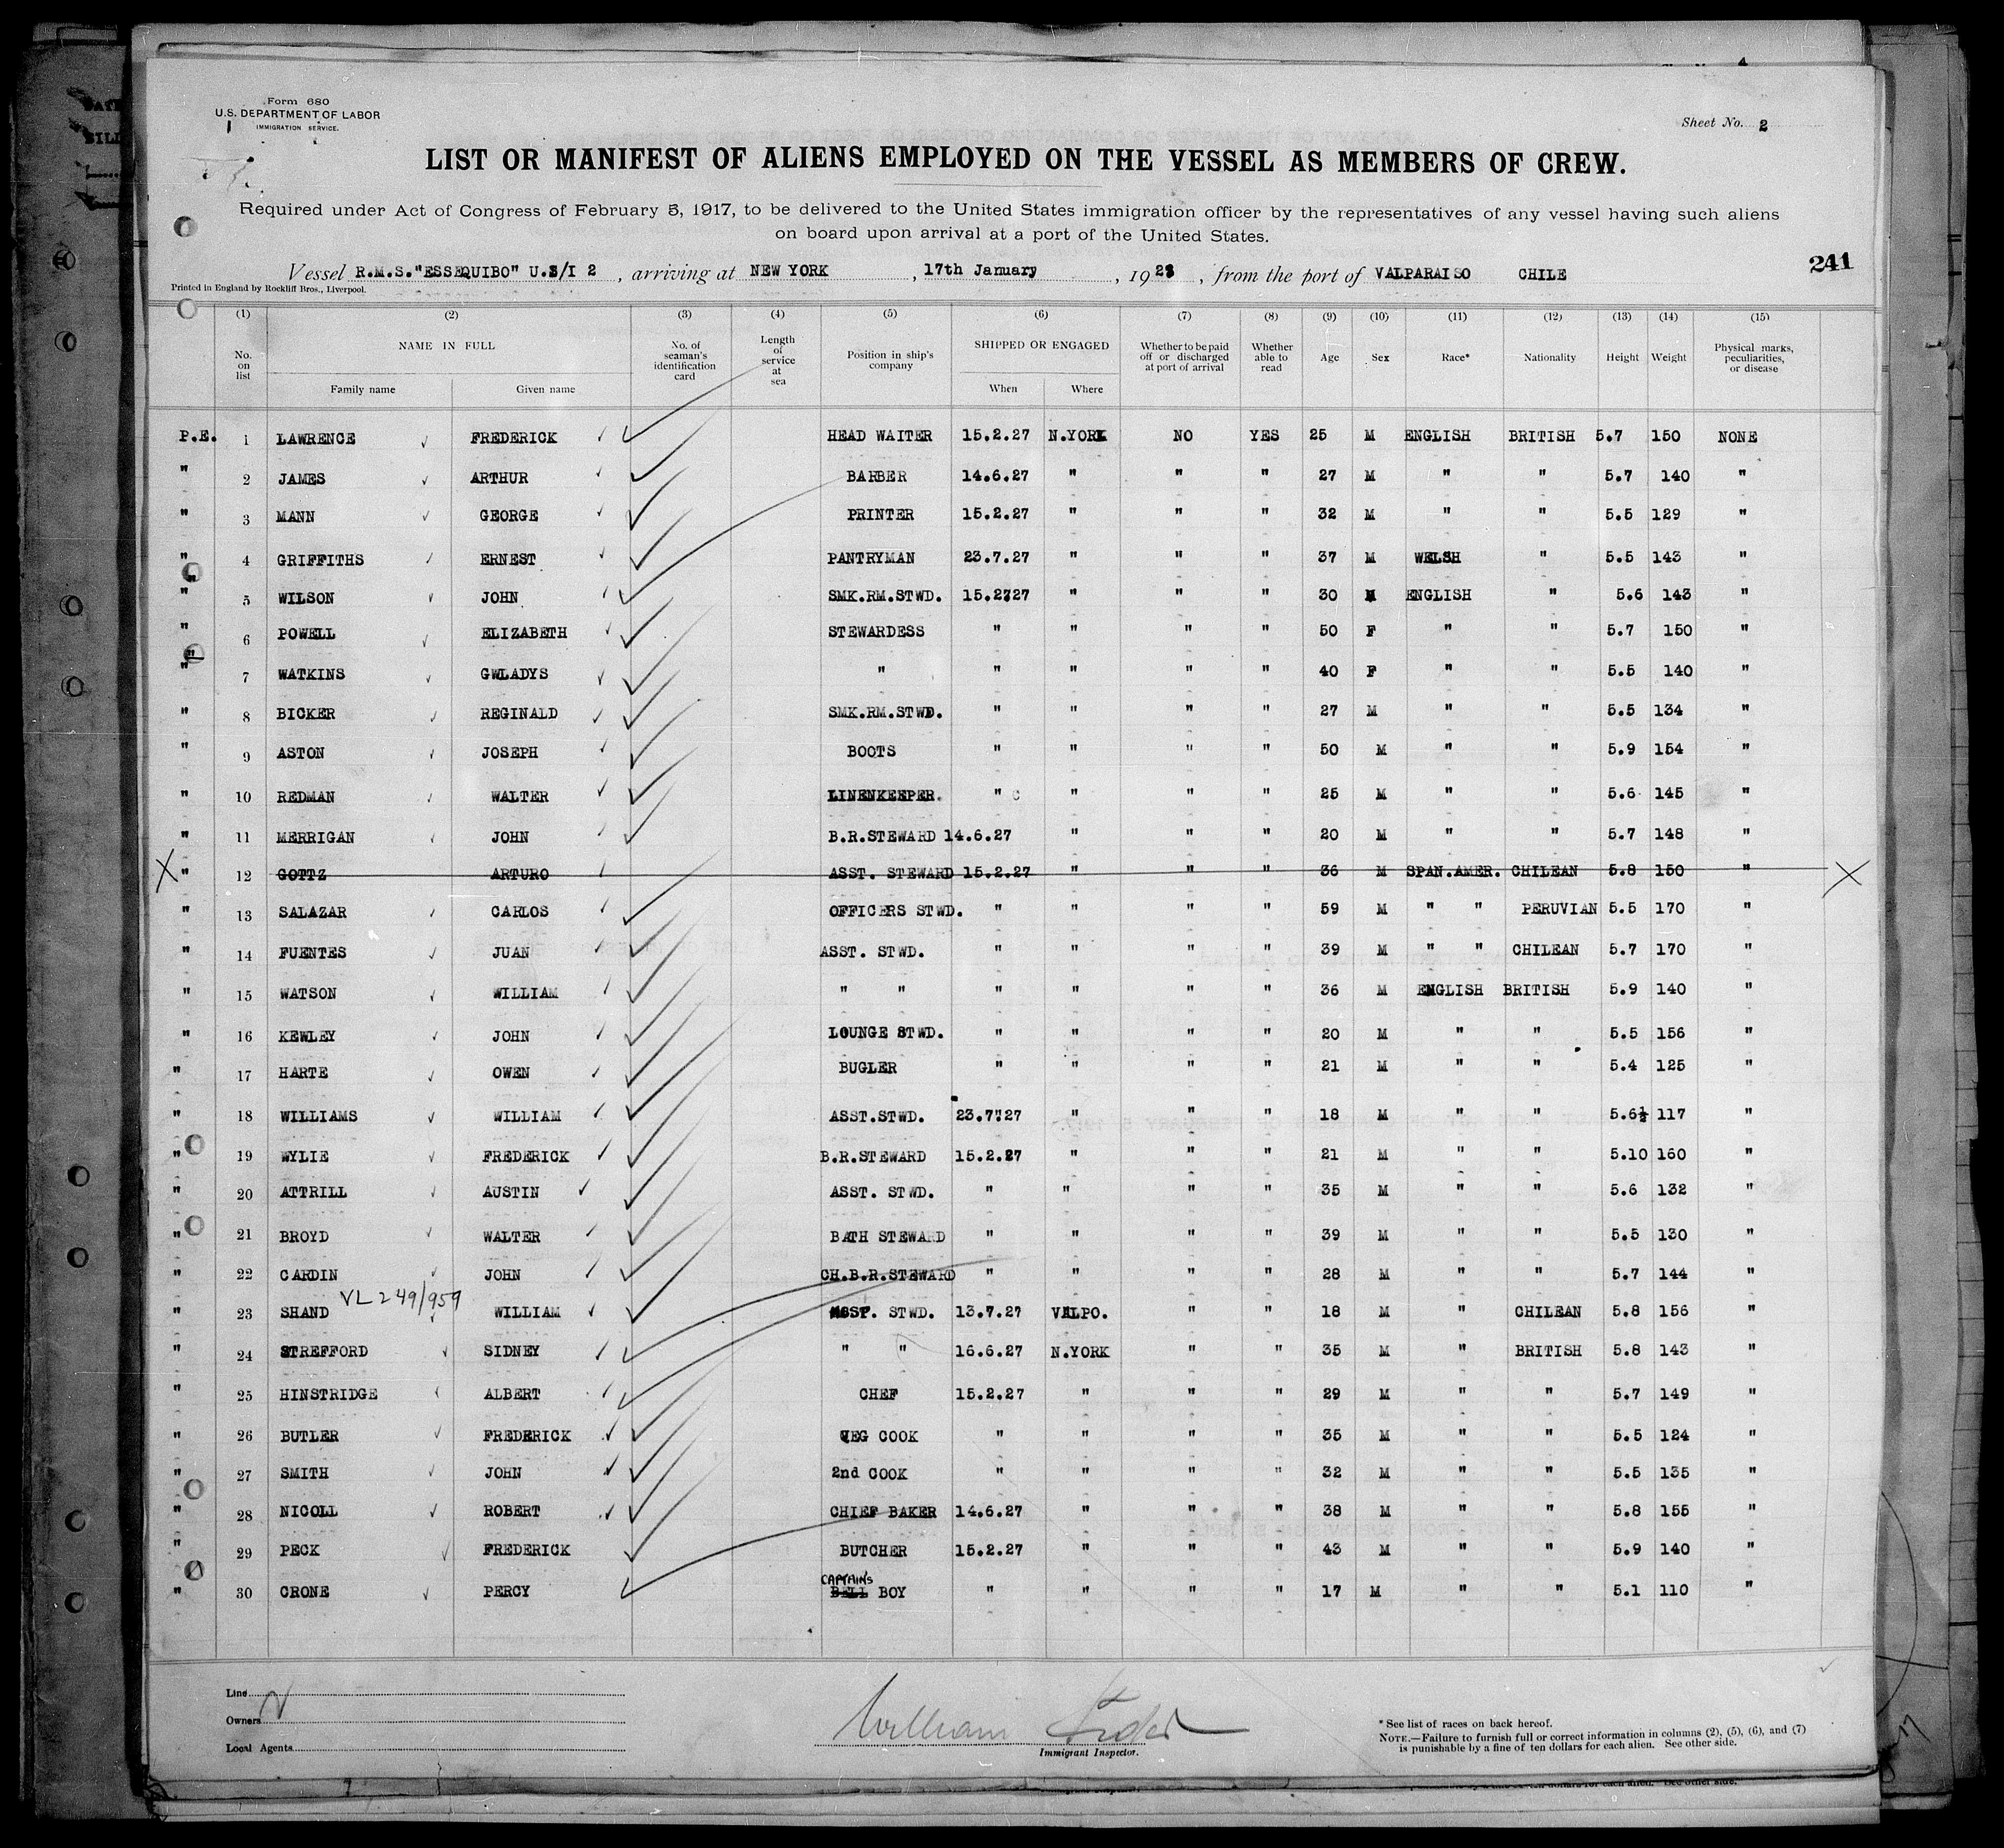 Form 680
U.S. DEPARTMENT OF LABOR
IMMIGRATION SERVICE.
Sheet No. 2
LIST OR MANIFEST OF ALIENS EMPLOYED ON THE VESSEL AS MEMBERS OF CREW.
Required under Act of Congress of February 5, 1917, to be delivered to the United States immigration officer by the representatives of any vessel having such aliens
on board upon arrival at a port of the United States.
Vessel R.M.S."ESSEQUIBO" U.S/I 2 , arriving at NEW YORK , 17th January , 1928 , from the port of VALPARAISO CHILE
241
Printed in England by Rockliff Bros., Liverpool.
(1) (2) (3) (4) (5) (6) (7) (8) (9) (10) (11) (12) (13) (14) (15)
No. on list NAME IN FULL Family name Given name No. of seaman's identification card Length of service at sea Position in ship's company SHIPPED OR ENGAGED When Where Whether to be paid off or discharged at port of arrival Whether able to read Age Sex Race* Nationality Height Weight Physical marks, peculiarities, or disease
P.E. 1 LAWRENCE FREDERICK HEAD WAITER 15.2.27 N.YORK NO YES 25 M ENGLISH BRITISH 5.7 150 NONE
" 2 JAMES ARTHUR BARBER 14.6.27 " " " 27 M " " 5.7 140 "
" 3 MANN GEORGE PRINTER 15.2.27 " " " 32 M " " 5.5 129 "
" 4 GRIFFITHS ERNEST PANTRYMAN 23.7.27 " " " 37 M WELSH " 5.5 143 "
" 5 WILSON JOHN SMK.RM.STWD. 15.2727 " " " 30 M ENGLISH " 5.6 143 "
" 6 POWELL ELIZABETH STEWARDESS " " " " 50 F " " 5.7 150 "
" 7 WATKINS GWLADYS " " " " " 40 F " " 5.5 140 "
" 8 BICKER REGINALD SMK.RM.STWD. " " " " 27 M " " 5.5 134 "
" 9 ASTON JOSEPH BOOTS " " " " 50 M " " 5.9 154 "
" 10 REDMAN WALTER LINENKEEPER. " " " " 25 M " " 5.6 145 "
" 11 MERRIGAN JOHN B.R.STEWARD 14.6.27 " " " 20 M " " 5.7 148 "
X " 12 GOTTZ ARTURO ASST. STEWARD 15.2.27 " " " 36 M SPAN.AMER. CHILEAN 5.8 150 " X
" 13 SALAZAR CARLOS OFFICERS STWD. " " " " 59 M " " PERUVIAN 5.5 170 "
" 14 FUENTES JUAN ASST. STWD. " " " " 39 M " " CHILEAN 5.7 170 "
" 15 WATSON WILLIAM " " " " " " 36 M ENGLISH BRITISH 5.9 140 "
" 16 KEWLEY JOHN LOUNGE STWD. " " " " 20 M " " 5.5 156 "
" 17 HARTE OWEN BUGLER " " " " 21 M " " 5.4 125 "
" 18 WILLIAMS WILLIAM ASST.STWD. 23.7"27 " " " 18 M " " 5.6½ 117 "
" 19 WYLIE FREDERICK B.R.STEWARD 15.2.27 " " " 21 M " " 5.10 160 "
" 20 ATTRILL AUSTIN ASST. STWD. " " " " 35 M " " 5.6 132 "
" 21 BROYD WALTER BATH STEWARD " " " " 39 M " " 5.5 130 "
" 22 CARDIN JOHN CH.B.R.STEWARD " " " " 28 M " " 5.7 144 "
VL 249/959
" 23 SHAND WILLIAM ASST. STWD. 13.7.27 VALPO. " " 18 M " CHILEAN 5.8 156 "
" 24 STREFFORD SIDNEY " " 16.6.27 N.YORK " " 35 M " BRITISH 5.8 143 "
" 25 HINSTRIDGE ALBERT CHEF 15.2.27 " " " 29 M " " 5.7 149 "
" 26 BUTLER FREDERICK VEG COOK " " " " 35 M " " 5.5 124 "
" 27 SMITH JOHN 2nd COOK " " " " 32 M " " 5.5 135 "
" 28 NICOLL ROBERT CHIEF BAKER 14.6.27 " " " 38 M " " 5.8 155 "
" 29 PECK FREDERICK BUTCHER 15.2.27 " " " 43 M " " 5.9 140 "
CAPTAINS
" 30 CRONE PERCY BELL BOY " " " " 17 M " " 5.1 110 "
Line
Owners
Local Agents
William
Immigrant Inspector.
* See list of races on back hereof.
NOTE.—Failure to furnish full or correct information in columns (2), (5), (6), and (7)
is punishable by a fine of ten dollars for each alien. See other side.